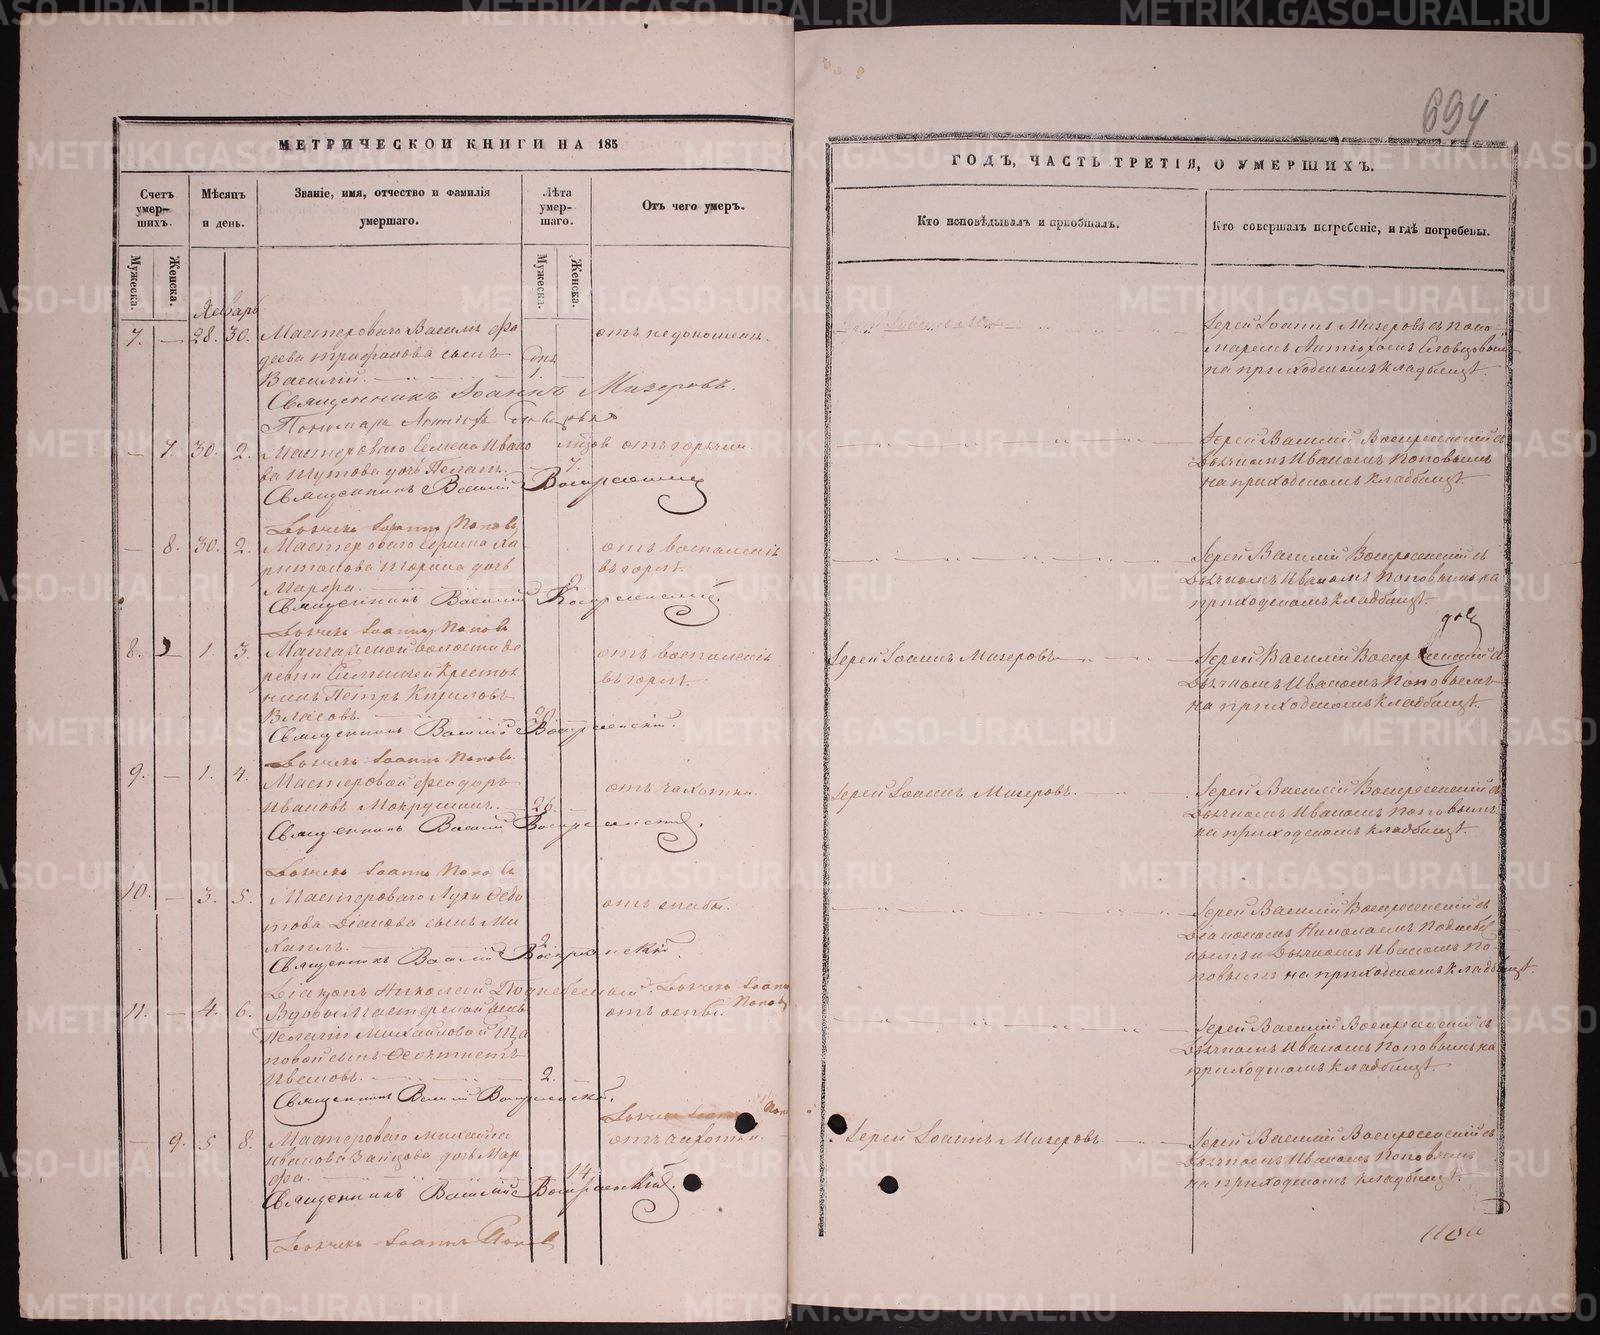 694
МЕТРИЧЕСКОЙ КНИГИ НА 185
ГОДЪ, ЧАСТЬ ТРЕТІЯ, О УМЕРШИХЪ.
Счетъ умер- шихъ.
Мѣсяцъ и день.
Званіе, имя, отчество и фамилія умершаго.
Лѣта умер- шаго.
Отъ чего умеръ.
Кто исповѣдывалъ и пріобщалъ.
Кто совершалъ погребеніе, и гдѣ погребены.
Мужеска.
Женска.
Мужеска.
Женска.
Январь
7. — 28. 30. Мастероваго Василія Фа
отъ недоношен.
Іерей Іоаннъ Мизеровъ съ поно-
деева Трифанова сынъ
Дн.
маремъ Антіохомъ Словцовымъ
Василій.
1.
на приходскомъ кладбищѣ.
Священникъ Іоаннъ Мизеровъ.
Пономарь
— 7. 30. 2. Мастероваго Семена Ивано
отъ горячки
Іерей Василій Воскресенскій съ
ва Шутова дочь Пелаг.
7.
Дьячкомъ Иваномъ Поповымъ
Священникъ Василій Воскресенскій
на приходскомъ кладбищѣ.
Дьячекъ Іоаннъ Поповъ
— 8. 30. 2. Мастероваго
отъ воспаленія
Іерей Василій Воскресенскій съ
дочь
въ горлѣ.
Дьячкомъ Иваномъ Поповымъ на
Марфа.
2
приходскомъ кладбищѣ.
Священникъ Василій Воскресенскій.
Дьячекъ Іоаннъ Поповъ
8. — 1. 3.
волости де
отъ воспаленія
Іерей Іоаннъ Мизеровъ
Іерей Василій Воскресенскій съ
ревни
Крестья
въ горлѣ.
Дьячкомъ Иваномъ Поповымъ
нинъ Петръ Кириловъ
на приходскомъ кладбищѣ.
Власовъ.
Священникъ Василій Воскресенскій.
Дьячекъ Іоаннъ Поповъ.
9. — 1. 4. Мастеровой Феодоръ
отъ чахотки.
Іерей Іоаннъ Мизеровъ.
Іерей Василій Воскресенскій съ
Ивановъ Мокрушинъ.
26.
Дьячкомъ Иваномъ Поповымъ
Священникъ Василій Воскресенскій.
на приходскомъ кладбищѣ.
Дьячекъ Іоаннъ Поповъ
10. — 3. 5. Мастероваго Луки Ѳедо
отъ оспы.
Іерей Василій Воскресенскій съ
това Діанова сынъ Ми
Діакономъ Николаемъ
хаилъ.
2
и Дьячкомъ Иваномъ По-
Священникъ Василій Воскресенскій.
повымъ на приходскомъ кладбищѣ.
Діаконъ Николай
Дьячекъ Іоаннъ
Поповъ
11. — 4. 6. Вдовы Мастерской жены
отъ оспы.
Іерей Василій Воскресенскій съ
Пелагіи Михаиловой
Дьячкомъ Иваномъ Поповымъ на
повой сынъ Феоктистъ
приходскомъ кладбищѣ.
Ивановъ.
2.
Священникъ Василій Воскресенскій.
Дьячекъ Іоаннъ Поп
— 9. 5 8. Мастероваго Михаила
отъ чахотки.
Іерей Іоаннъ Мизеровъ
Іерей Василій Воскресенскій съ
Иванова Зайцова дочь Мар
Дьячкомъ Иваномъ Поповымъ
фа.
14
на приходскомъ кладбищѣ.
Священникъ Василій Воскресенскій.
Дьячекъ Іоаннъ Поповъ
METRIKI.GASO-URAL.RU